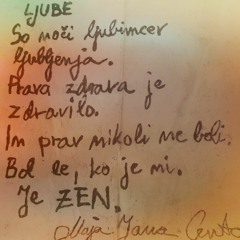 LJUBE
So moči ljubimcev
ljubljenja.
Prava zdrava je
zdravilo.
In prav nikoli ne boli.
Bol le, ko je ni.
Je ZEN.
Maja Jana